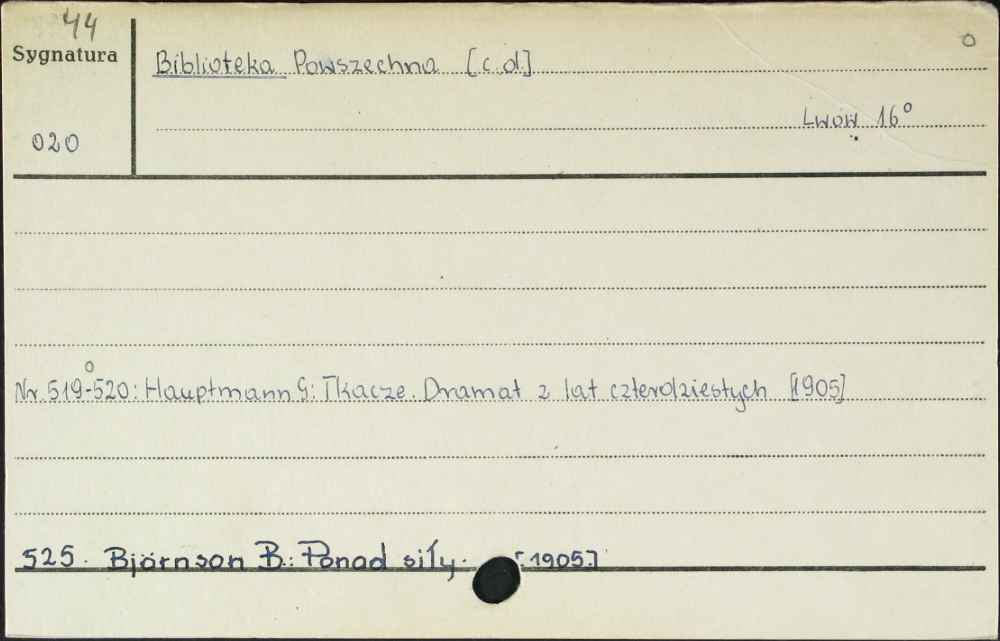 44
Sygnatura
020
Biblioteka Powszechna [c.d.]
Lwów 16°
Nr. 519-520: Hauptmann G: Tkacze. Dramat z lat czterdziestych [1905]
525. Björnson B.: Ponad siły. [1905.]